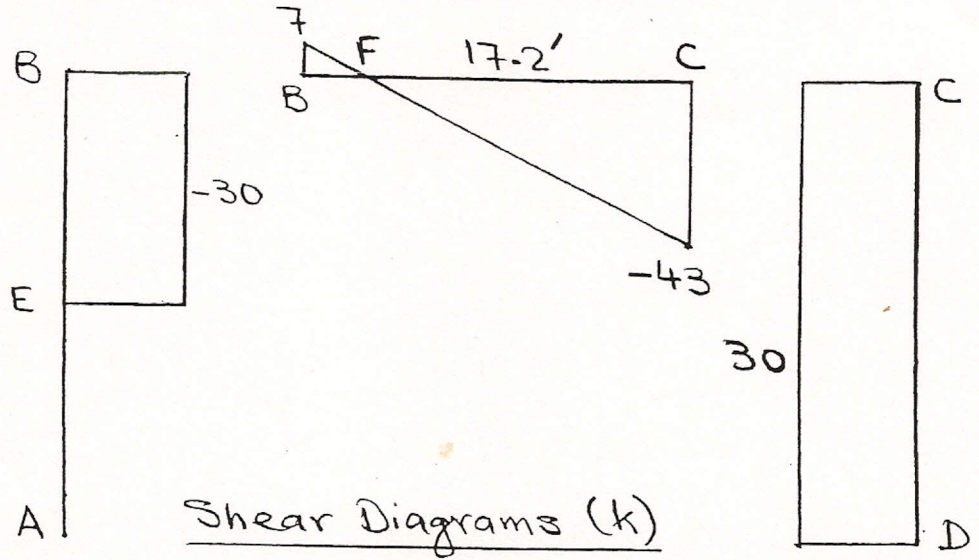 7
B
F
17.2'
C
B
C
-30
-43
E
30
A
Shear Diagrams (k)
D